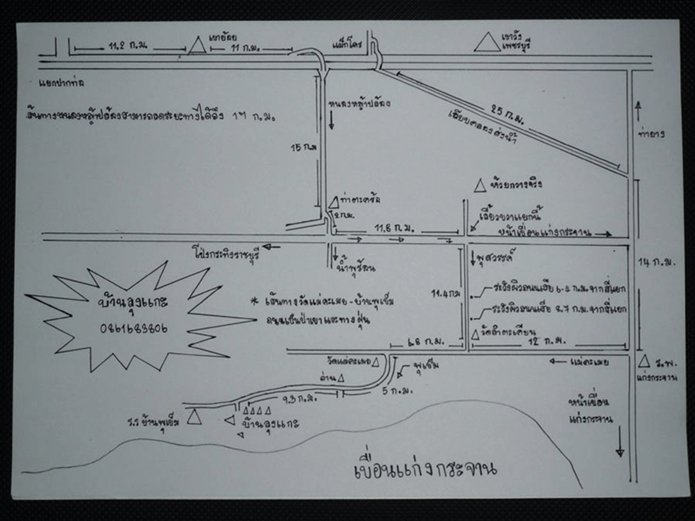 11.2 ก.ม.
เขาอีโก้
11 ก.ม.
แม็คโคร
เขาวัง
เพชรบุรี
แยกปากท่อ
เส้นทางหนองหญ้าปล้องสามารถลดระยะทางได้ถึง 17 ก.ม.
หนองหญ้าปล้อง
25 ก.ม.
เลียบคลองส่งน้ำ
ท่ายาง
15 ก.ม
ท่าตะคร้อ
2 ก.ม.
ห้วยกวางจริง
11.8 ก.ม.
เลี้ยวขวาแยกนี้
หน้าเขื่อนแก่งกระจาน
โป่งกระทิงราชบุรี
น้ำพุร้อน
พุสวรรค์
14 ก.ม.
บ้านลุงแกะ
0861683806
* เส้นทางวังแม่คะเมย - บ้านพุเข็ม
ถนนเป็นป่าเขาและทางฝุ่น
11.4 กม
ระวังผิวถนนเสีย 6.2 ก.ม.จากสี่แยก
ระวังผิวถนนเสีย 8.7 ก.ม.จากสี่แยก
6.8 ก.ม.
12 ก.ม.
แม่คะเมย
ร.พ.
แก่งกระจาน
พุเข็ม
ด่าน
5 ก.ม.
9.3 ก.ม.
ร.ร บ้านพุเข็ม
บ้านลุงแกะ
หน้าเขื่อน
แก่งกระจาน
เขื่อนแก่งกระจาน